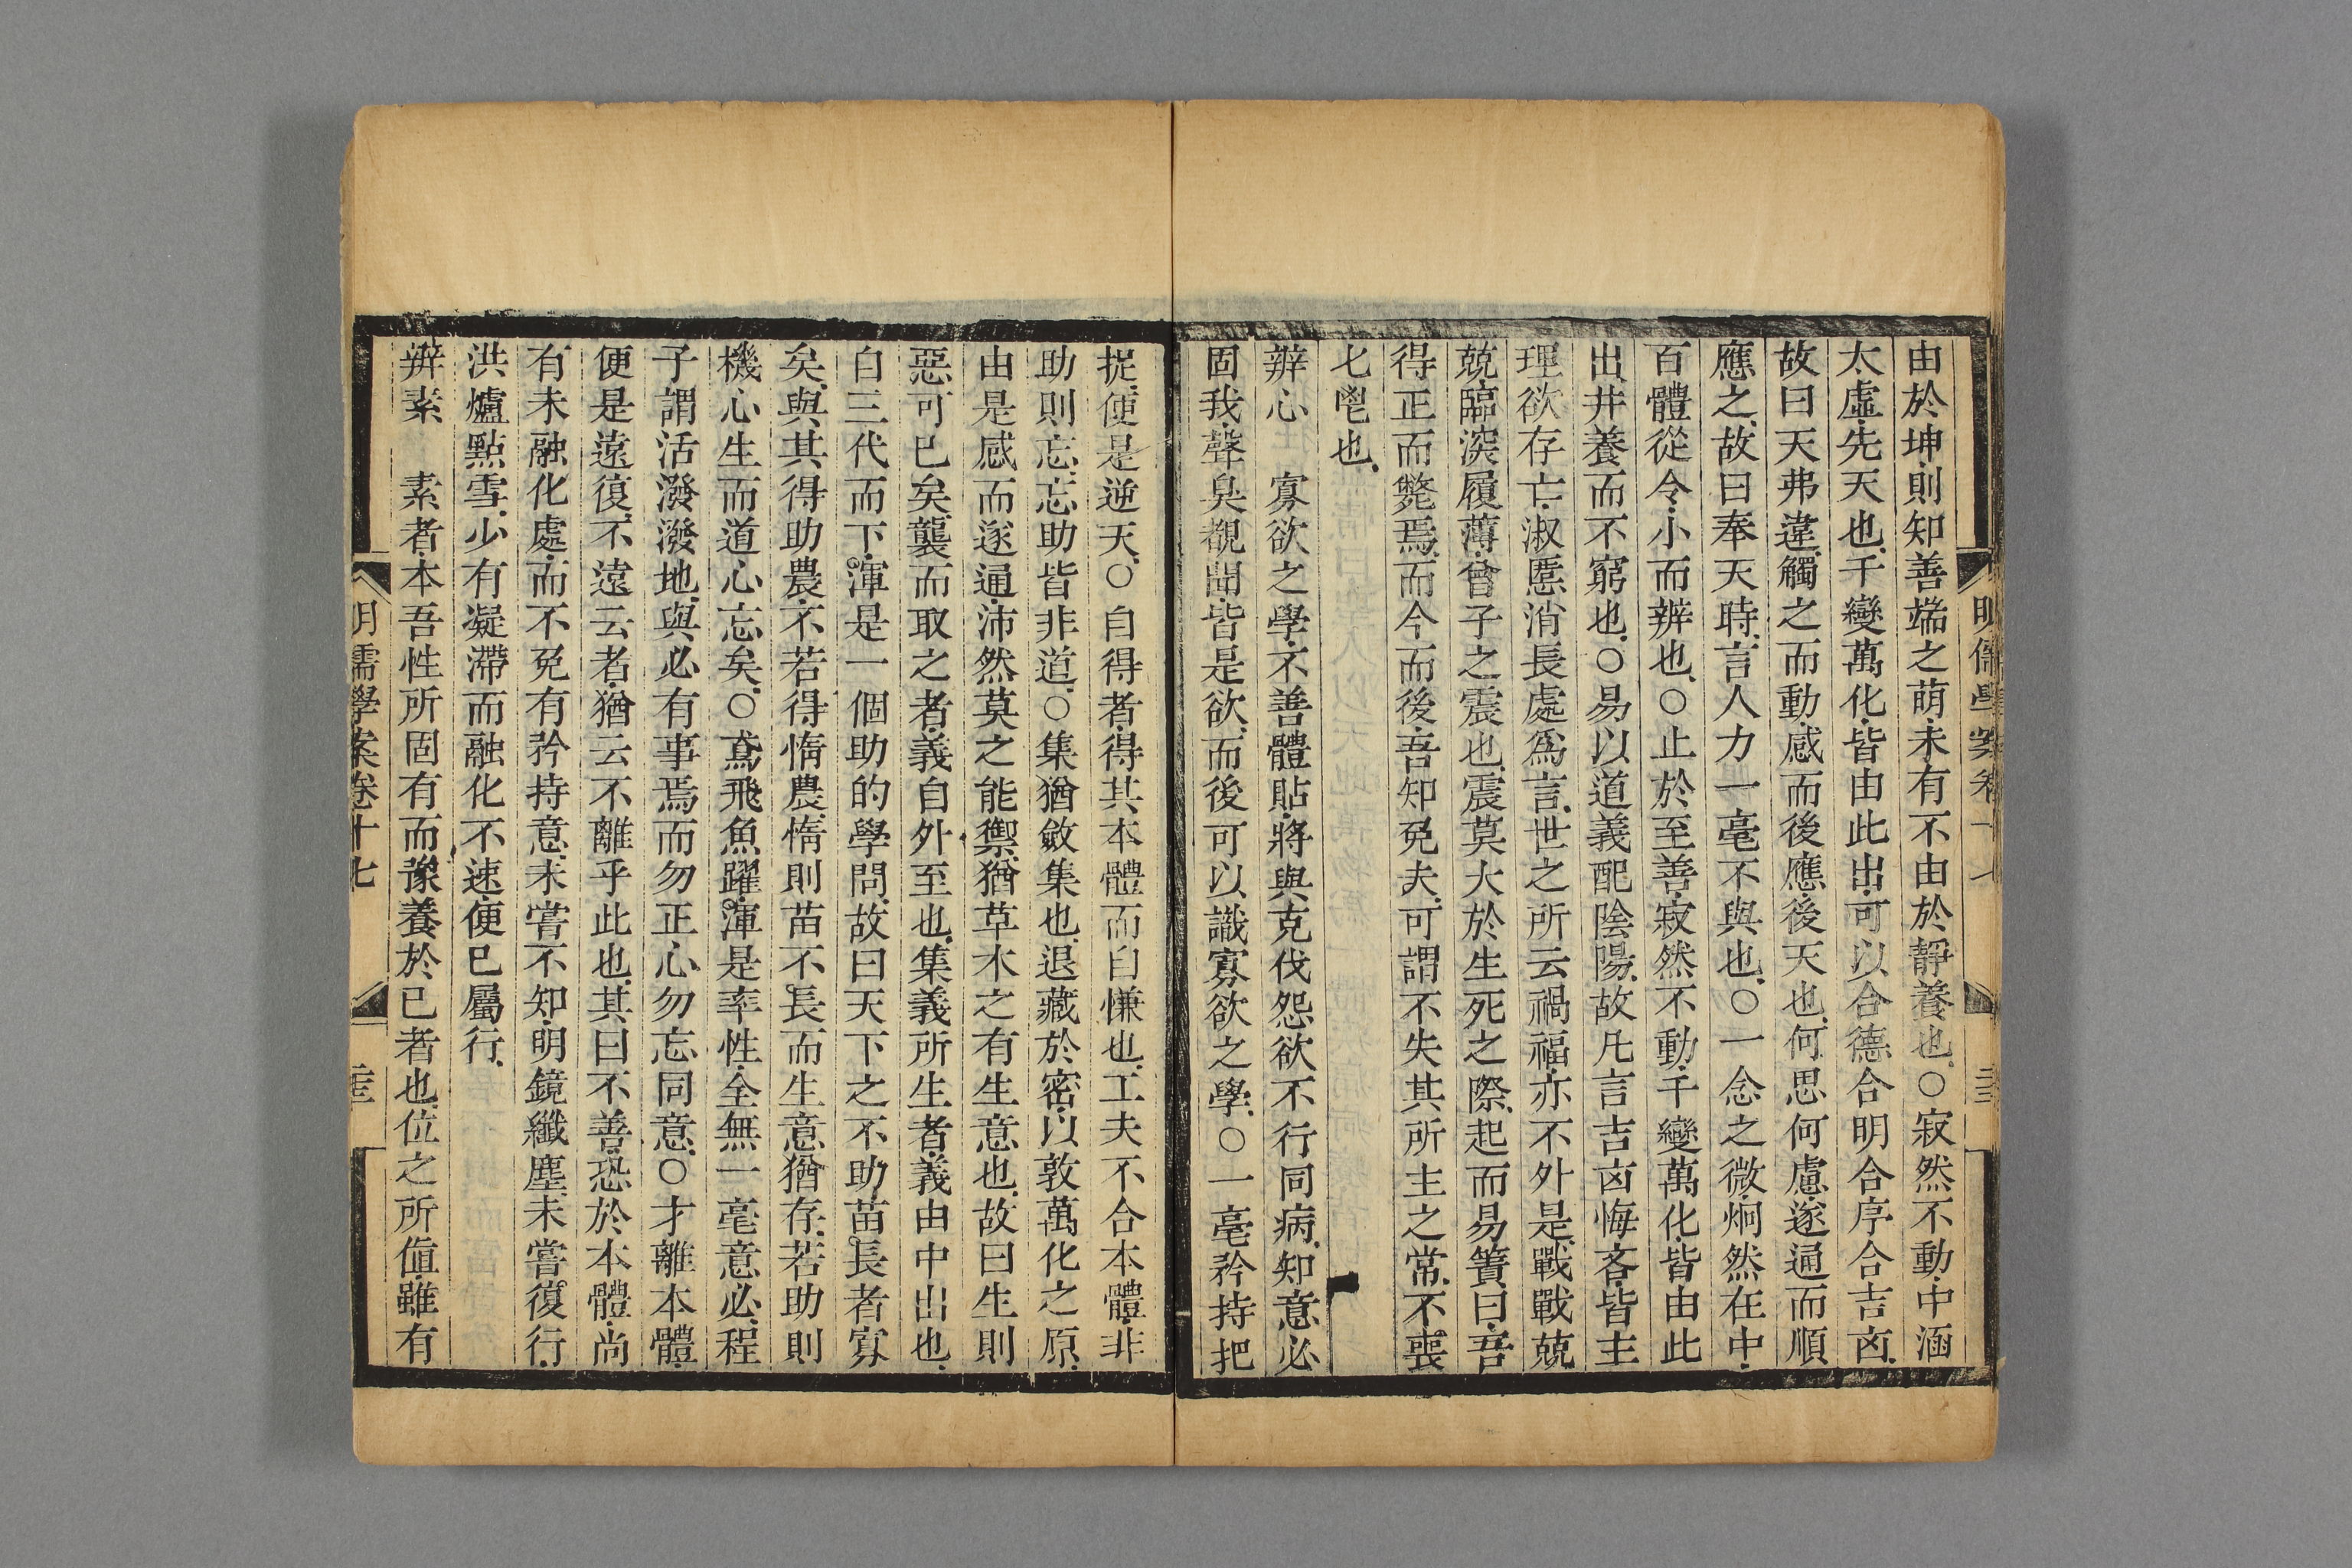 明儒學案卷十七
由於坤則知善端之萌未有不由於靜養也○寂然不動中涵
太虛先天也千變萬化皆由此出可以合德合明合序合吉凶
故曰天弗違觸之而動感而後應後天也何思何慮遂通而順
應之故曰奉天時言人力一毫不與也○一念之微炯然在中
百體從令小而辨也○止於至善寂然不動千變萬化皆由此
出井養而不窮也○易以道義配陰陽故凡言吉凶悔吝皆主
理欲存亡淑慝消長處爲言世之所云禍福亦不外是戰戰兢
兢臨深履薄曾子之震也震莫大於生死之際起而易簀曰吾
得正而斃焉而今而後吾知免夫可謂不失其所主之常不喪
匕鬯也
辨心　寡欲之學不善體貼將與克伐怨欲不行同病知意必
固我聲臭覩聞皆是欲而後可以識寡欲之學○一毫矜持把
捉便是逆天○自得者得其本體而自慊也工夫不合本體非
助則忘忘助皆非道○集猶斂集也退藏於密以敦萬化之原
由是感而遂通沛然莫之能禦猶草木之有生意也故曰生則
惡可已矣襲而取之者義自外至也集義所生者義由中出也
自三代而下渾是一個助的學問故曰天下之不助苗長者寡
矣與其得助農不若得惰農惰則苗不長而生意猶存若助則
機心生而道心忘矣○鳶飛魚躍渾是率性全無一毫意必程
子謂活潑潑地與必有事焉而勿正心勿忘同意○才離本體
便是遠復不遠云者猶云不離乎此也其曰不善恐於本體尚
有未融化處而不免有矜持意未嘗不知明鏡纖塵未嘗復行
洪爐點雪少有凝滯而融化不速便已屬行
辨素　素者本吾性所固有而豫養於己者也位之所値雖有
明儒學案卷十七